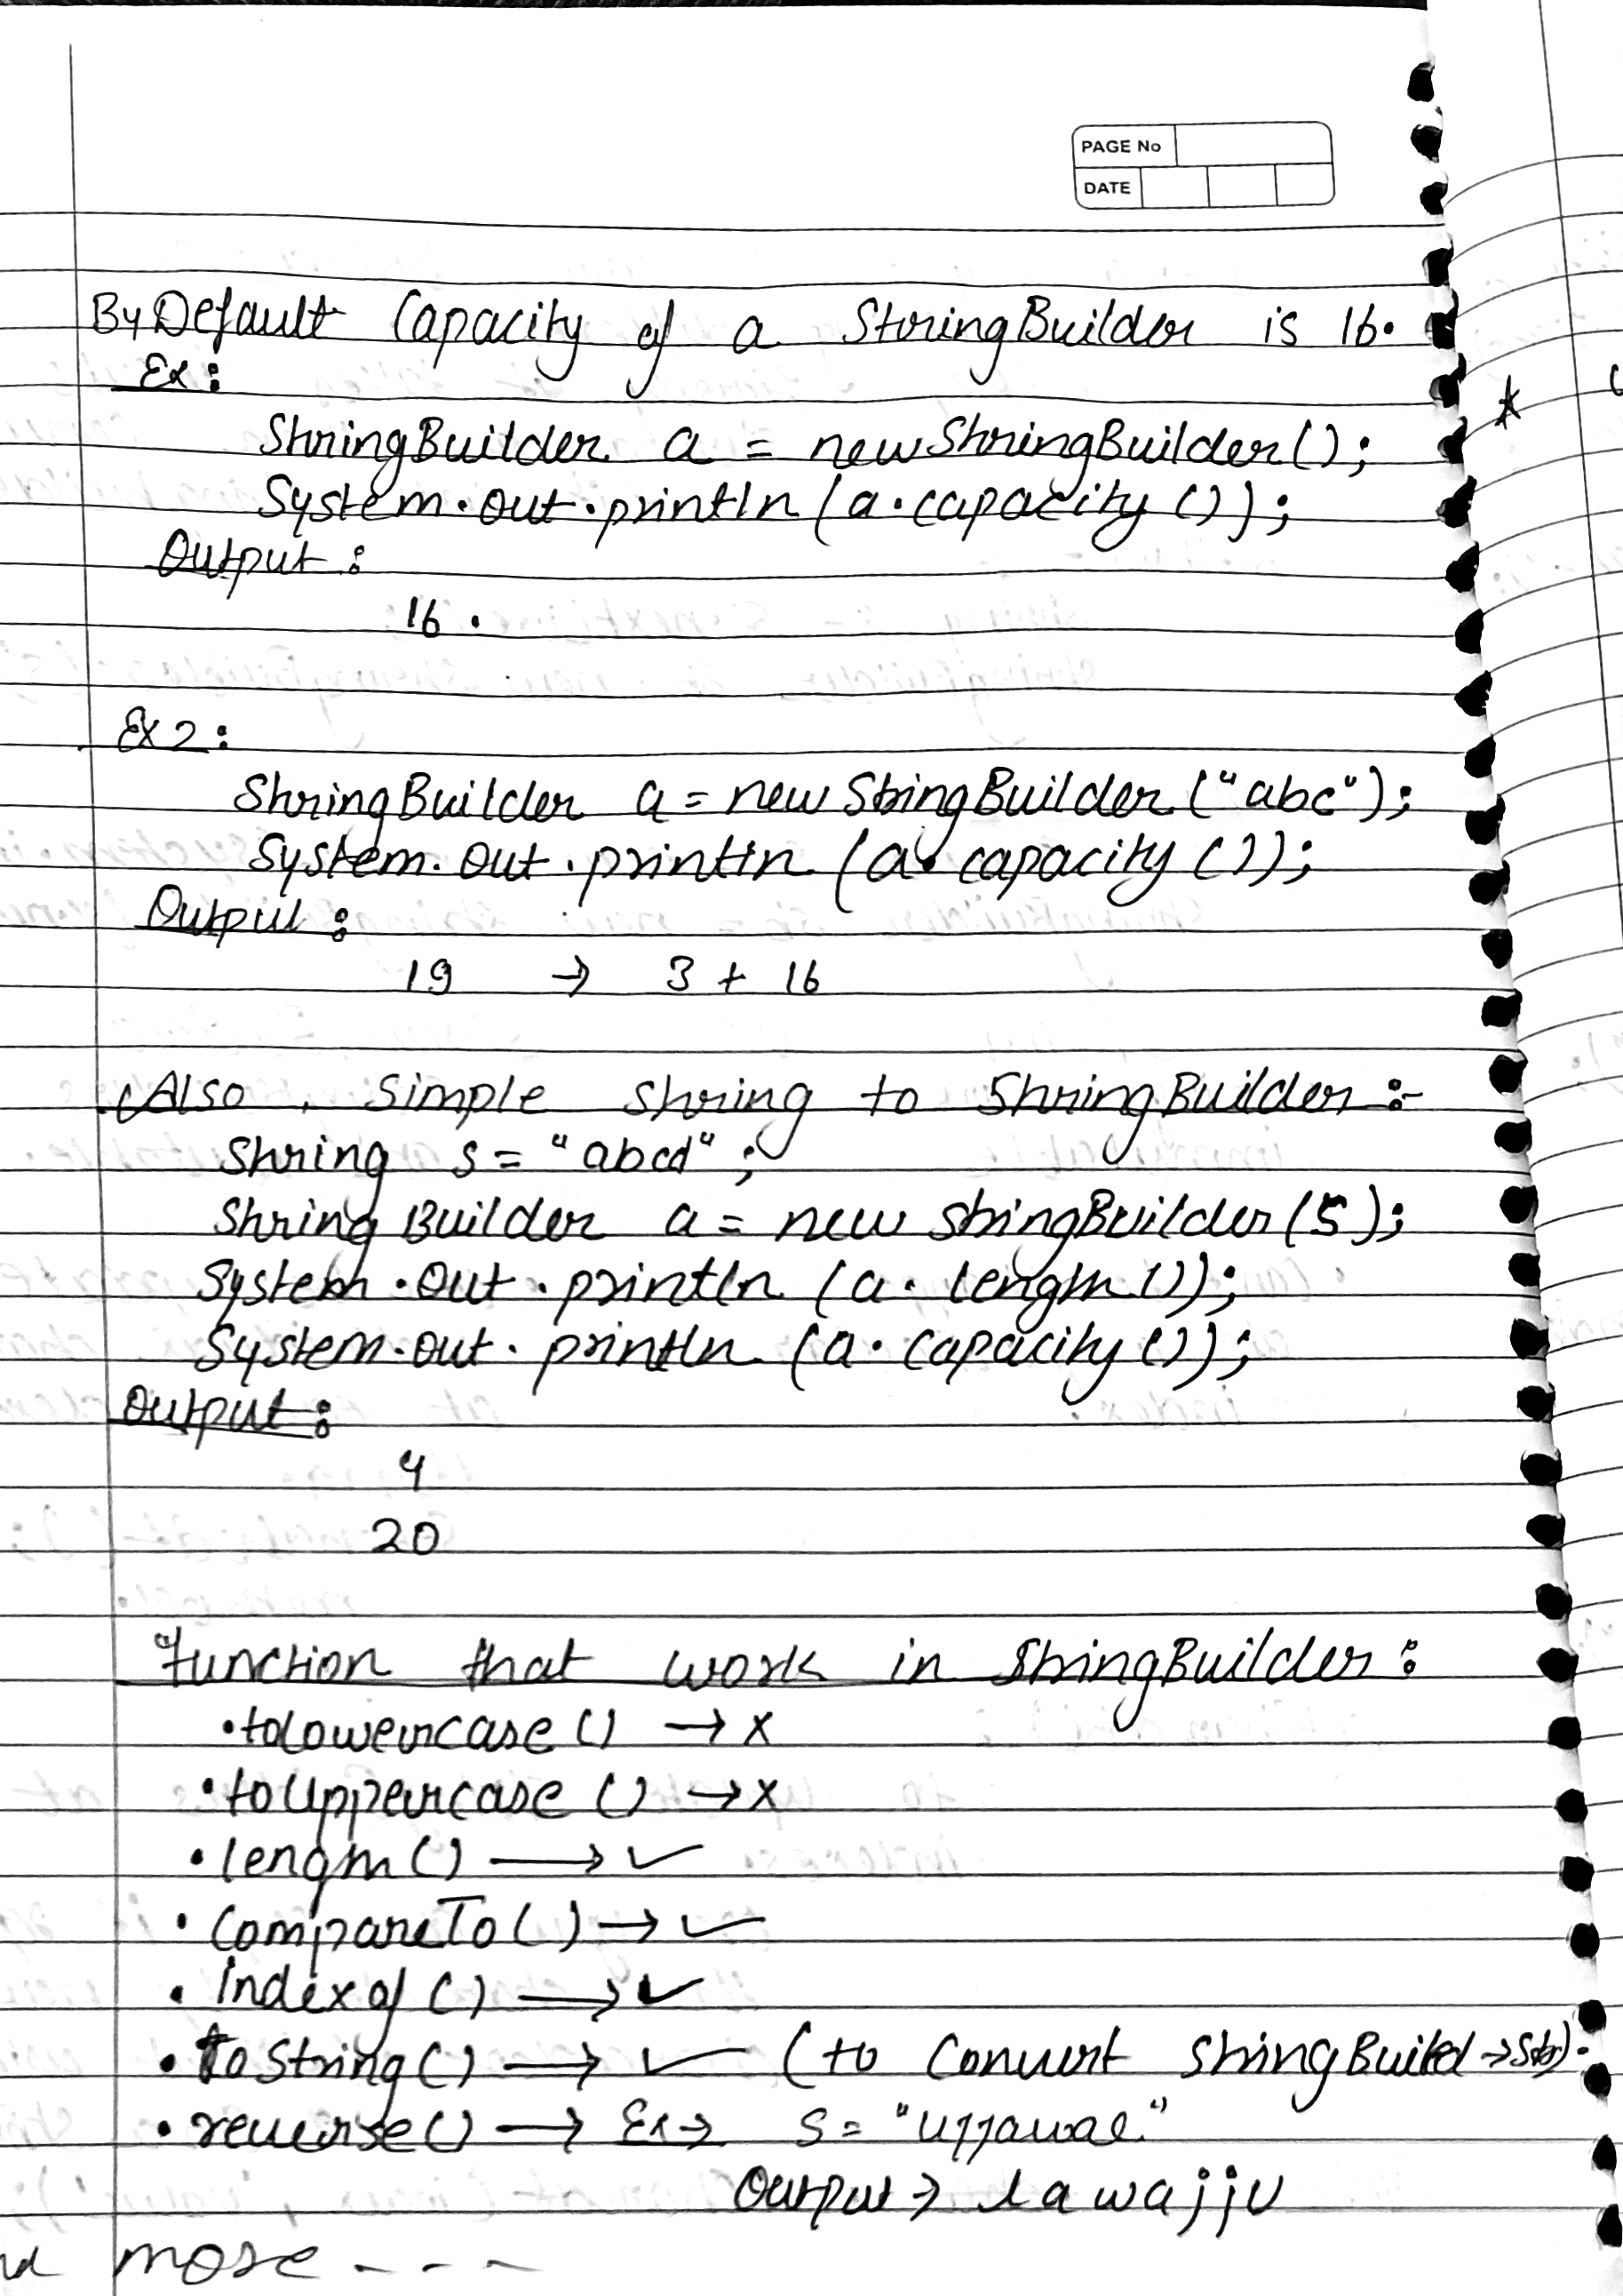 PAGE No
DATE
By Default Capacity of a StringBuilder is 16.
Ex:
StringBuilder a = new StringBuilder();
System.out.println(a.capacity());
Output:
16.
Ex 2:
StringBuilder a = new StringBuilder("abc");
System.out.println(a.capacity());
Output:
19 → 3 + 16
Also, Simple string to StringBuilder:-
String s = "abcd";
String Builder a = new StringBuilder(s);
System.out.println(a.length());
System.out.println(a.capacity());
Output:
4
20
function that work in StringBuilder:
• tolowercase() → x
• toUppercase() → x
• length() → ✓
• CompareTo() → ✓
• Indexof() → ✓
• ToString() → ✓ (to Convert StringBuild → Str).
• reverse() → Ex → s = "ujjawal"
Output → lawajju
more - - -
*